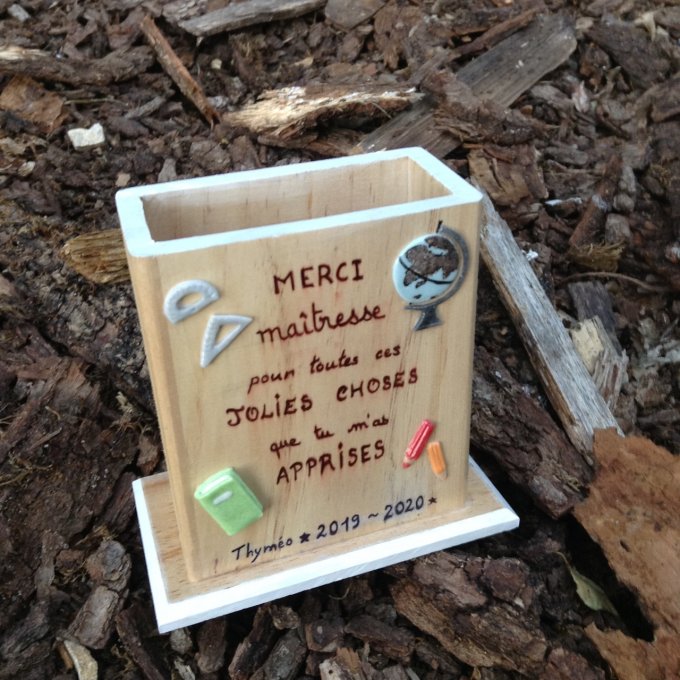 MERCI
maîtresse
pour toutes ces
JOLIES CHOSES
que tu m'as
APPRISES
Thyméo ★ 2019 ~ 2020 ★